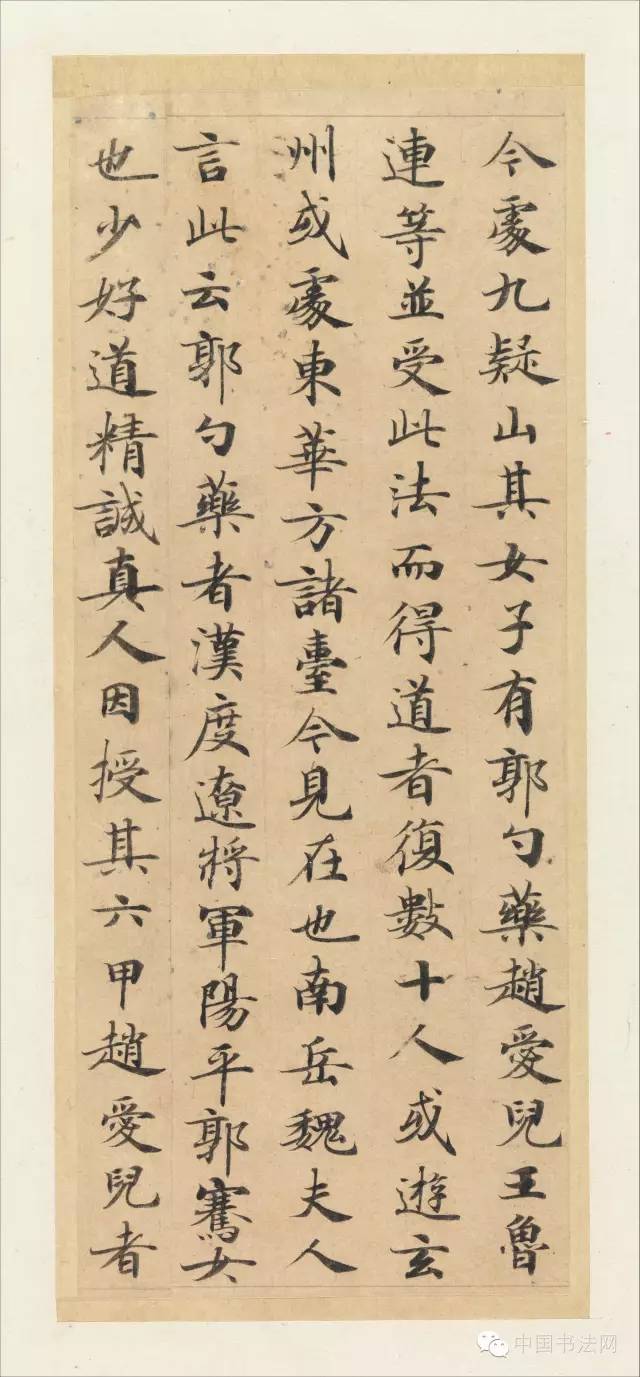 今處九疑山其女子有郭勺藥趙愛兒王魯
連等並受此法而得道者復數十人或遊玄
州或處東華方諸臺今見在也南岳魏夫人
言此云郭勺藥者漢度遼將軍陽平郭騫女
也少好道精誠真人因授其六甲趙愛兒者
中国书法网